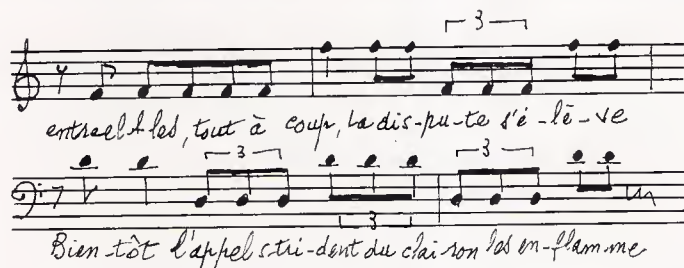 3
entre elles, tout à coup, La dis-pu-te s'é-lè-ve
3 3 3
Bien-tôt l'appel stri-dent du clai-ron les en-flam-me